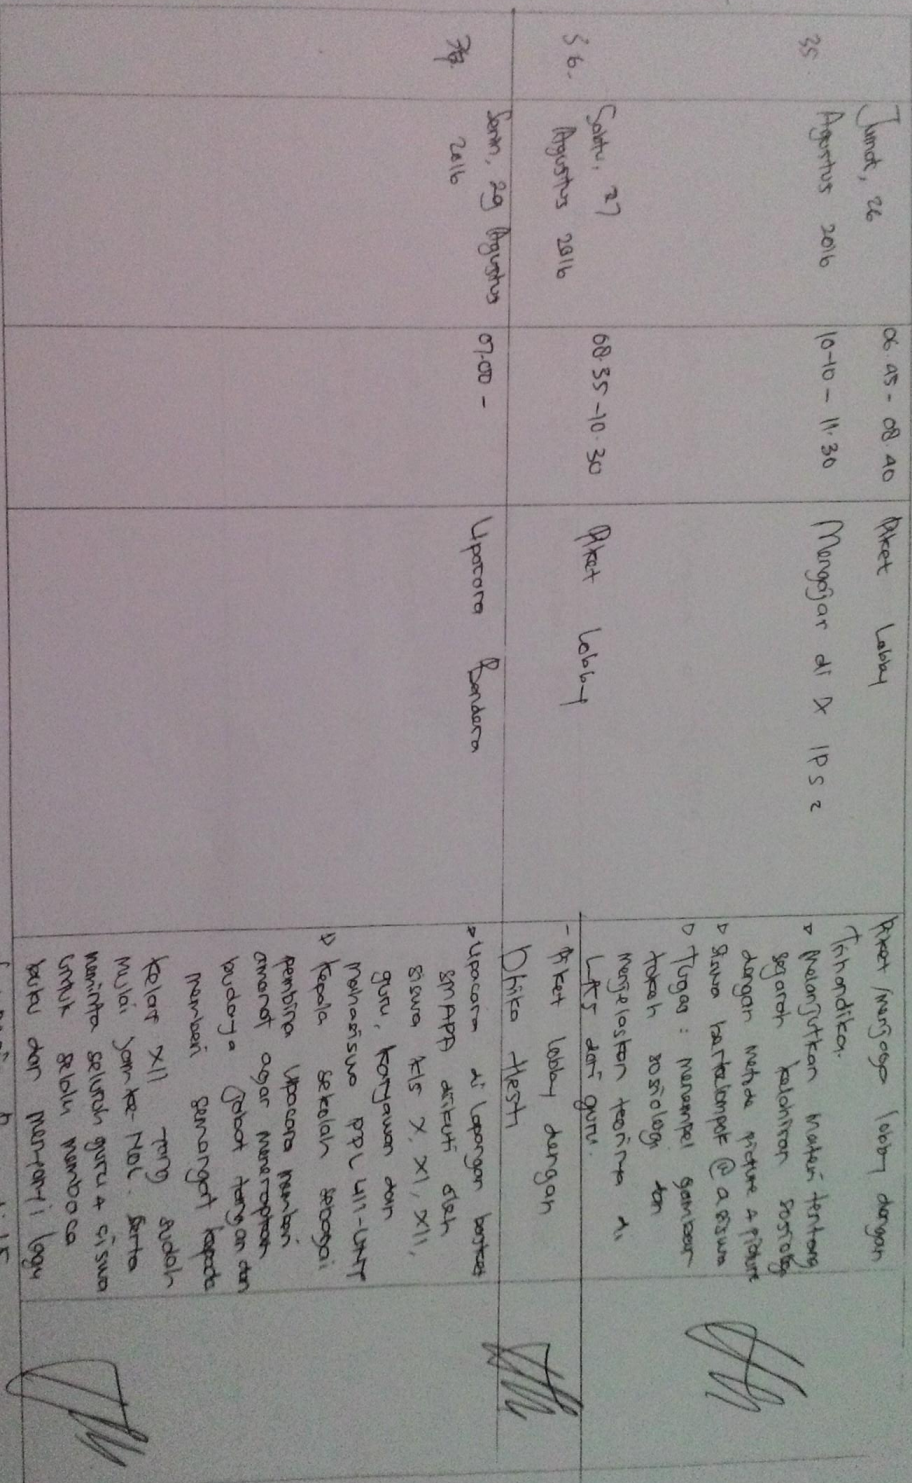 35.
Jumat, 26
Agustus 2016
06.45 - 08.40
10.10 - 11.30
Piket Lobby
Mengajar di X IPS 2
Piket/menjaga lobby dengan
Trihandika.
Melanjutkan materi tentang
sejarah kelahiran sosiologi
dengan metode picture & picture
Siswa berkelompok @ 2 siswa
Tugas : menempel gambar
tokoh sosiologi dan
menjelaskan teorinya di
LAS dari guru.
36.
Sabtu, 27
Agustus 2016
08.35 - 10.30
Piket Lobby
- Piket lobby dengan
Dhika Hesti
37.
Senin, 29 Agustus
2016
07.00 -
Upacara Bendera
Upacara di lapangan basket
SMAPA diikuti oleh
siswa kls X, XI, XII,
guru, karyawan dan
mahasiswa PPL UII-UNY
Kepala sekolah sebagai
pembina upacara memberi
amanat agar menerapkan
budaya jabat tangan dan
memberi semangat kepada
kelas XII yang sudah
mulai jam ke-Nol. Serta
meminta seluruh guru & siswa
untuk selalu membaca
buku dan menyanyi lagu